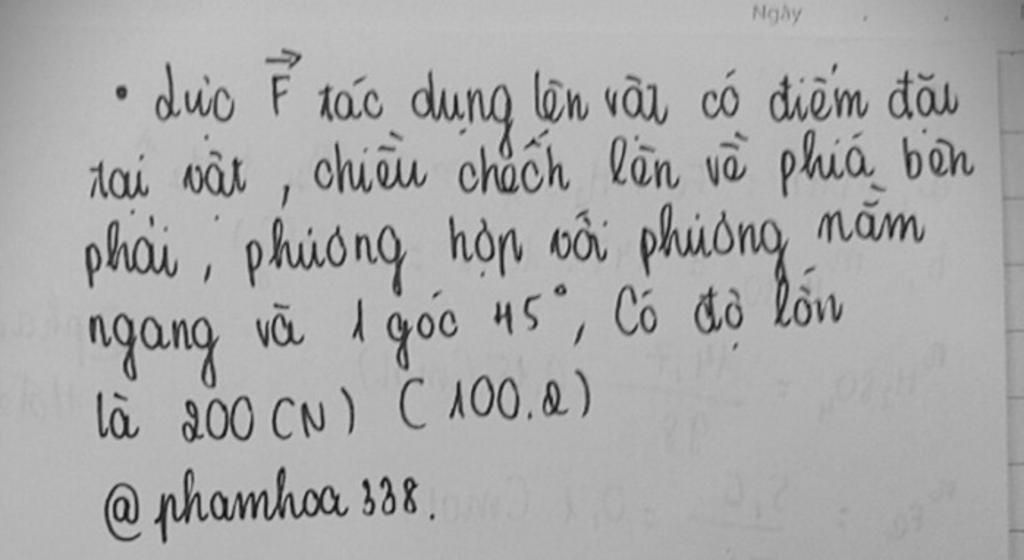 Ngày
• Lực F⃗ tác dụng lên vật có điểm đầu
tại vật, chiều chếch lên về phiá bên
phải, phương hợp với phương nằm
ngang và 1 góc 45°, Có độ lớn
là 200 (N) (100.2)
@phamhoa338.